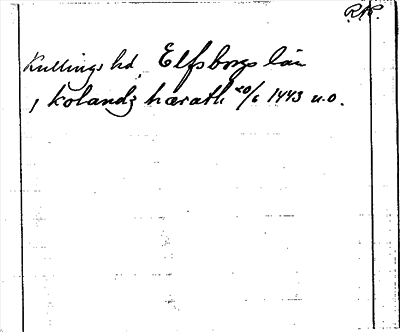 R.A.P.
Kullings hd, Elfsborgs län
, kolandz hærath 20/6 1443 u.o.